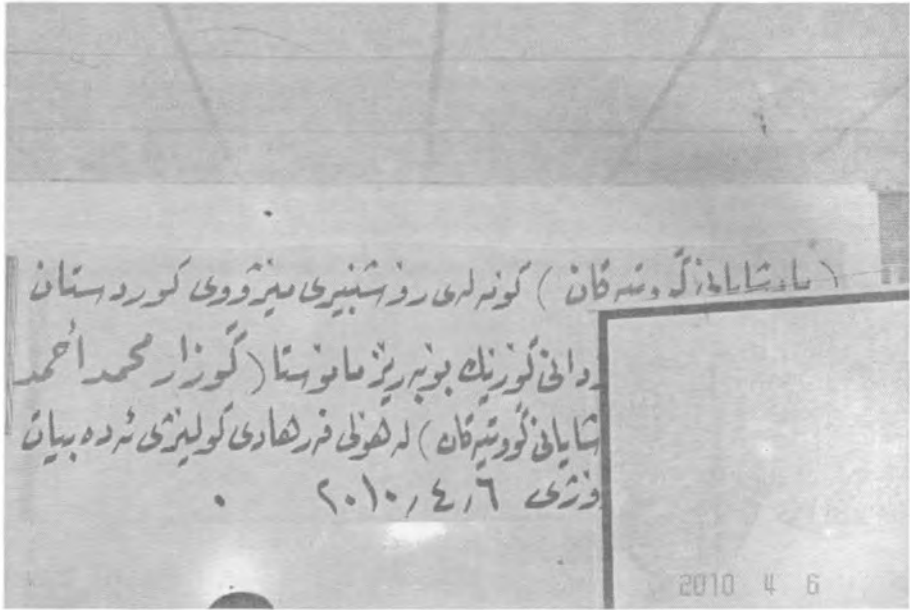 (پادشایانی گووتیەکان) کۆنەلەی رۆشنبیری مێژووی کوردستان
ردانی گۆڕێك بۆ بەڕێز مامۆستا (گوڵزار محمد أحمد
شایانی گووتیەکان) لە هۆڵی فەرهادی کۆلیژی ئەدەبیات
وژی ٢٠١٠/٤/٦
2010 4 6